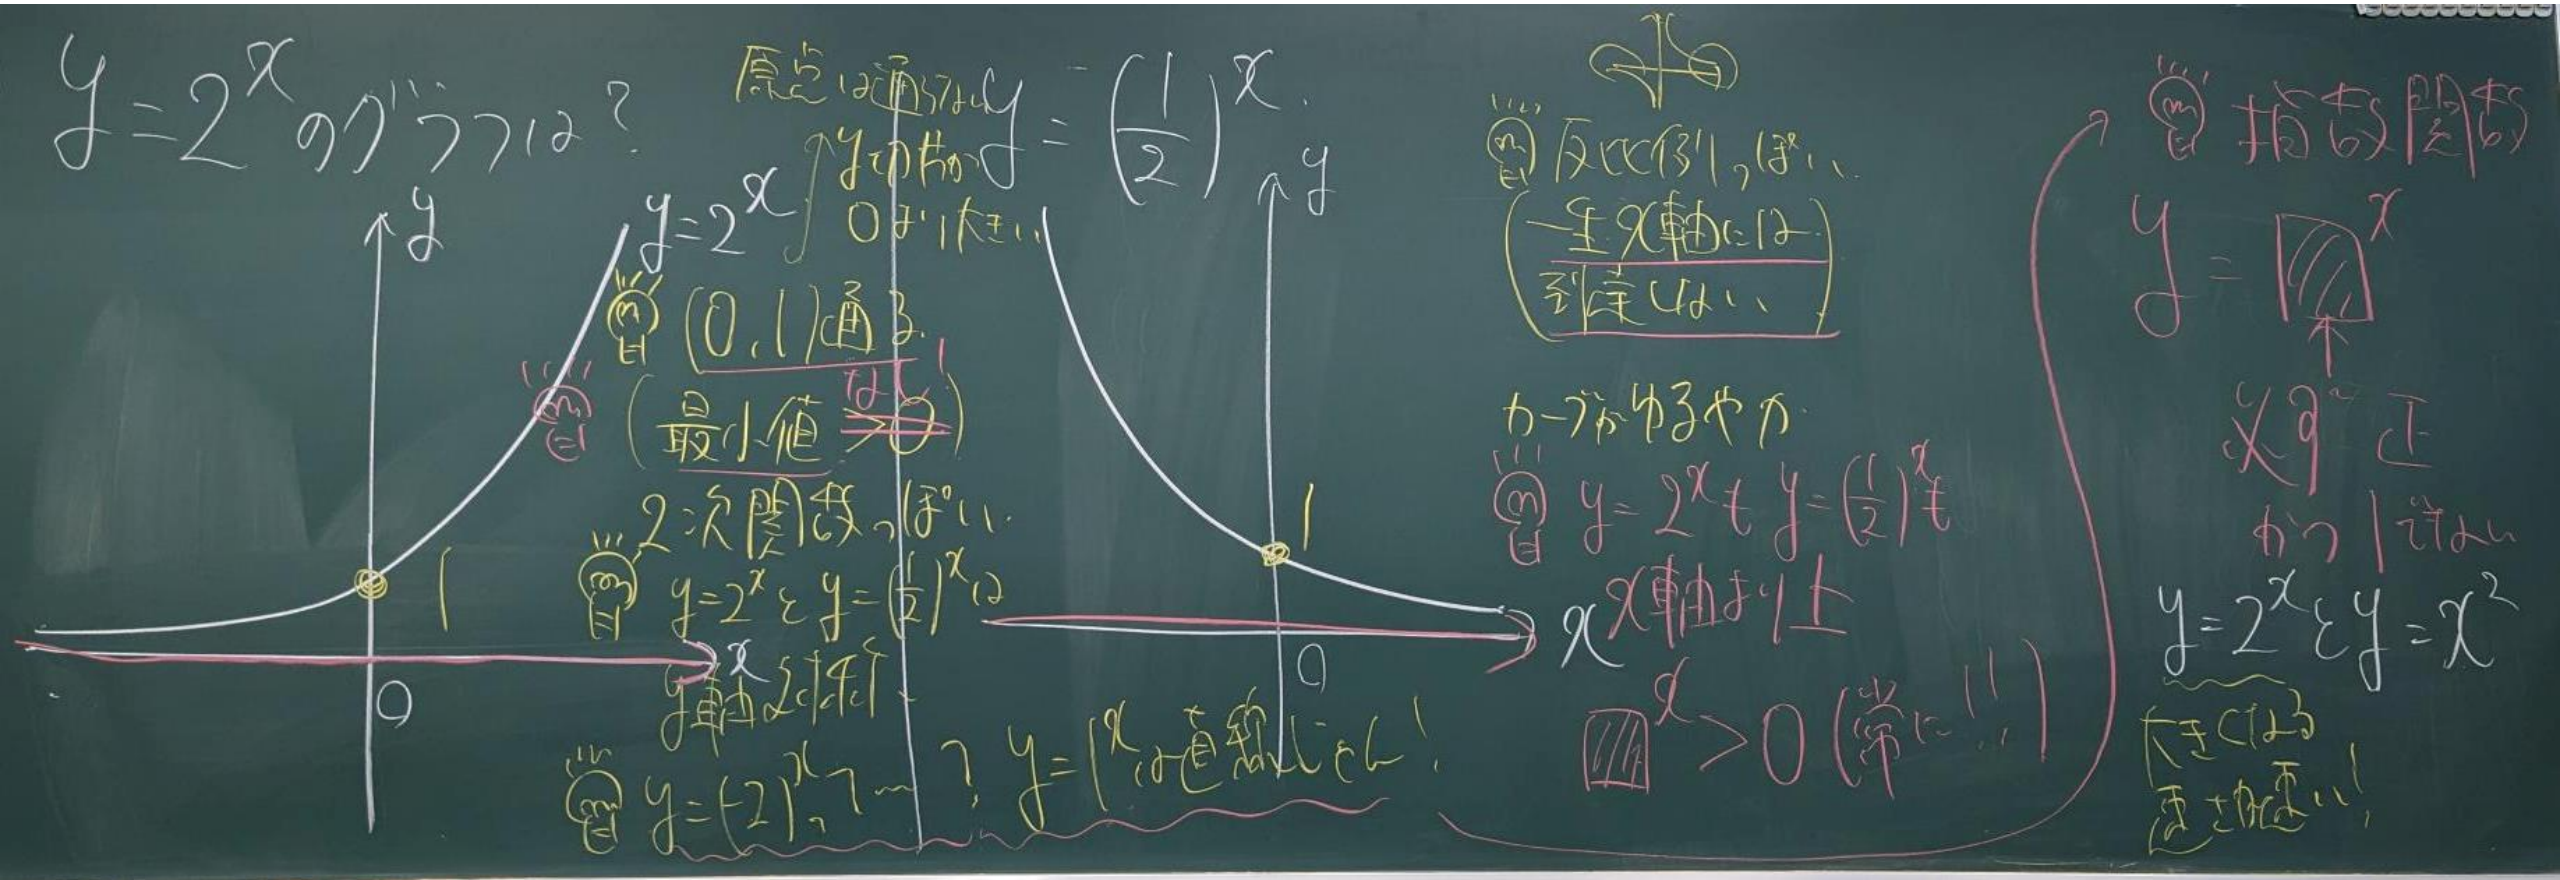 y=2^xのグラフは?
y
y=2^x
原点は通らない
yの方が
0より大きい
(0,1)通る
なし!
(最小値 >0)
2次関数っぽい
y=2^xとy=(1/2)^xは
y軸対称
1
x
0
y=(-2)^xって…? y=1^xは直線じゃん!
y=(1/2)^x
y
1
x
0
反比例っぽい
(一生x軸には
到達しない)
カーブがゆるやか
y=2^xもy=(1/2)^xも
x軸より上
^x>0(常に!!)
指数関数
y= ^x
↑
必ず正
かつ1でない
y=2^xとy=x^2
大きくなる
速さが速い!